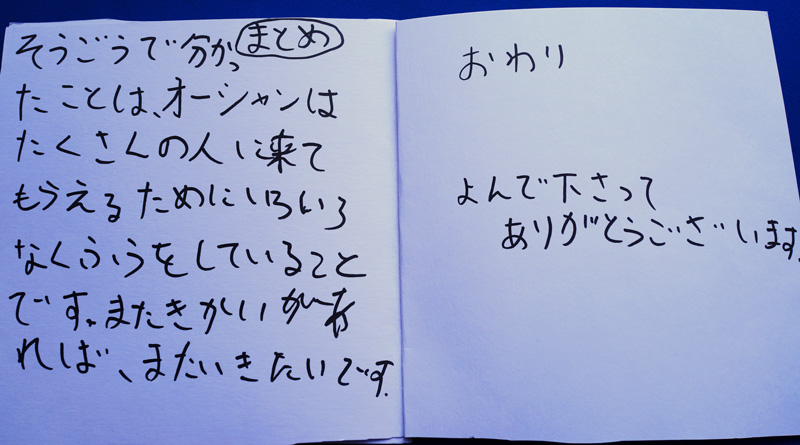 まとめ
そうごうで分かっ
たことは、オーシャンは
たくさんの人に来て
もうえるためにいろいろ
なくふうをしていること
です。またきかいがあ
れば、またいきたいです。
おわり
よんで下さって
ありがとうございます。